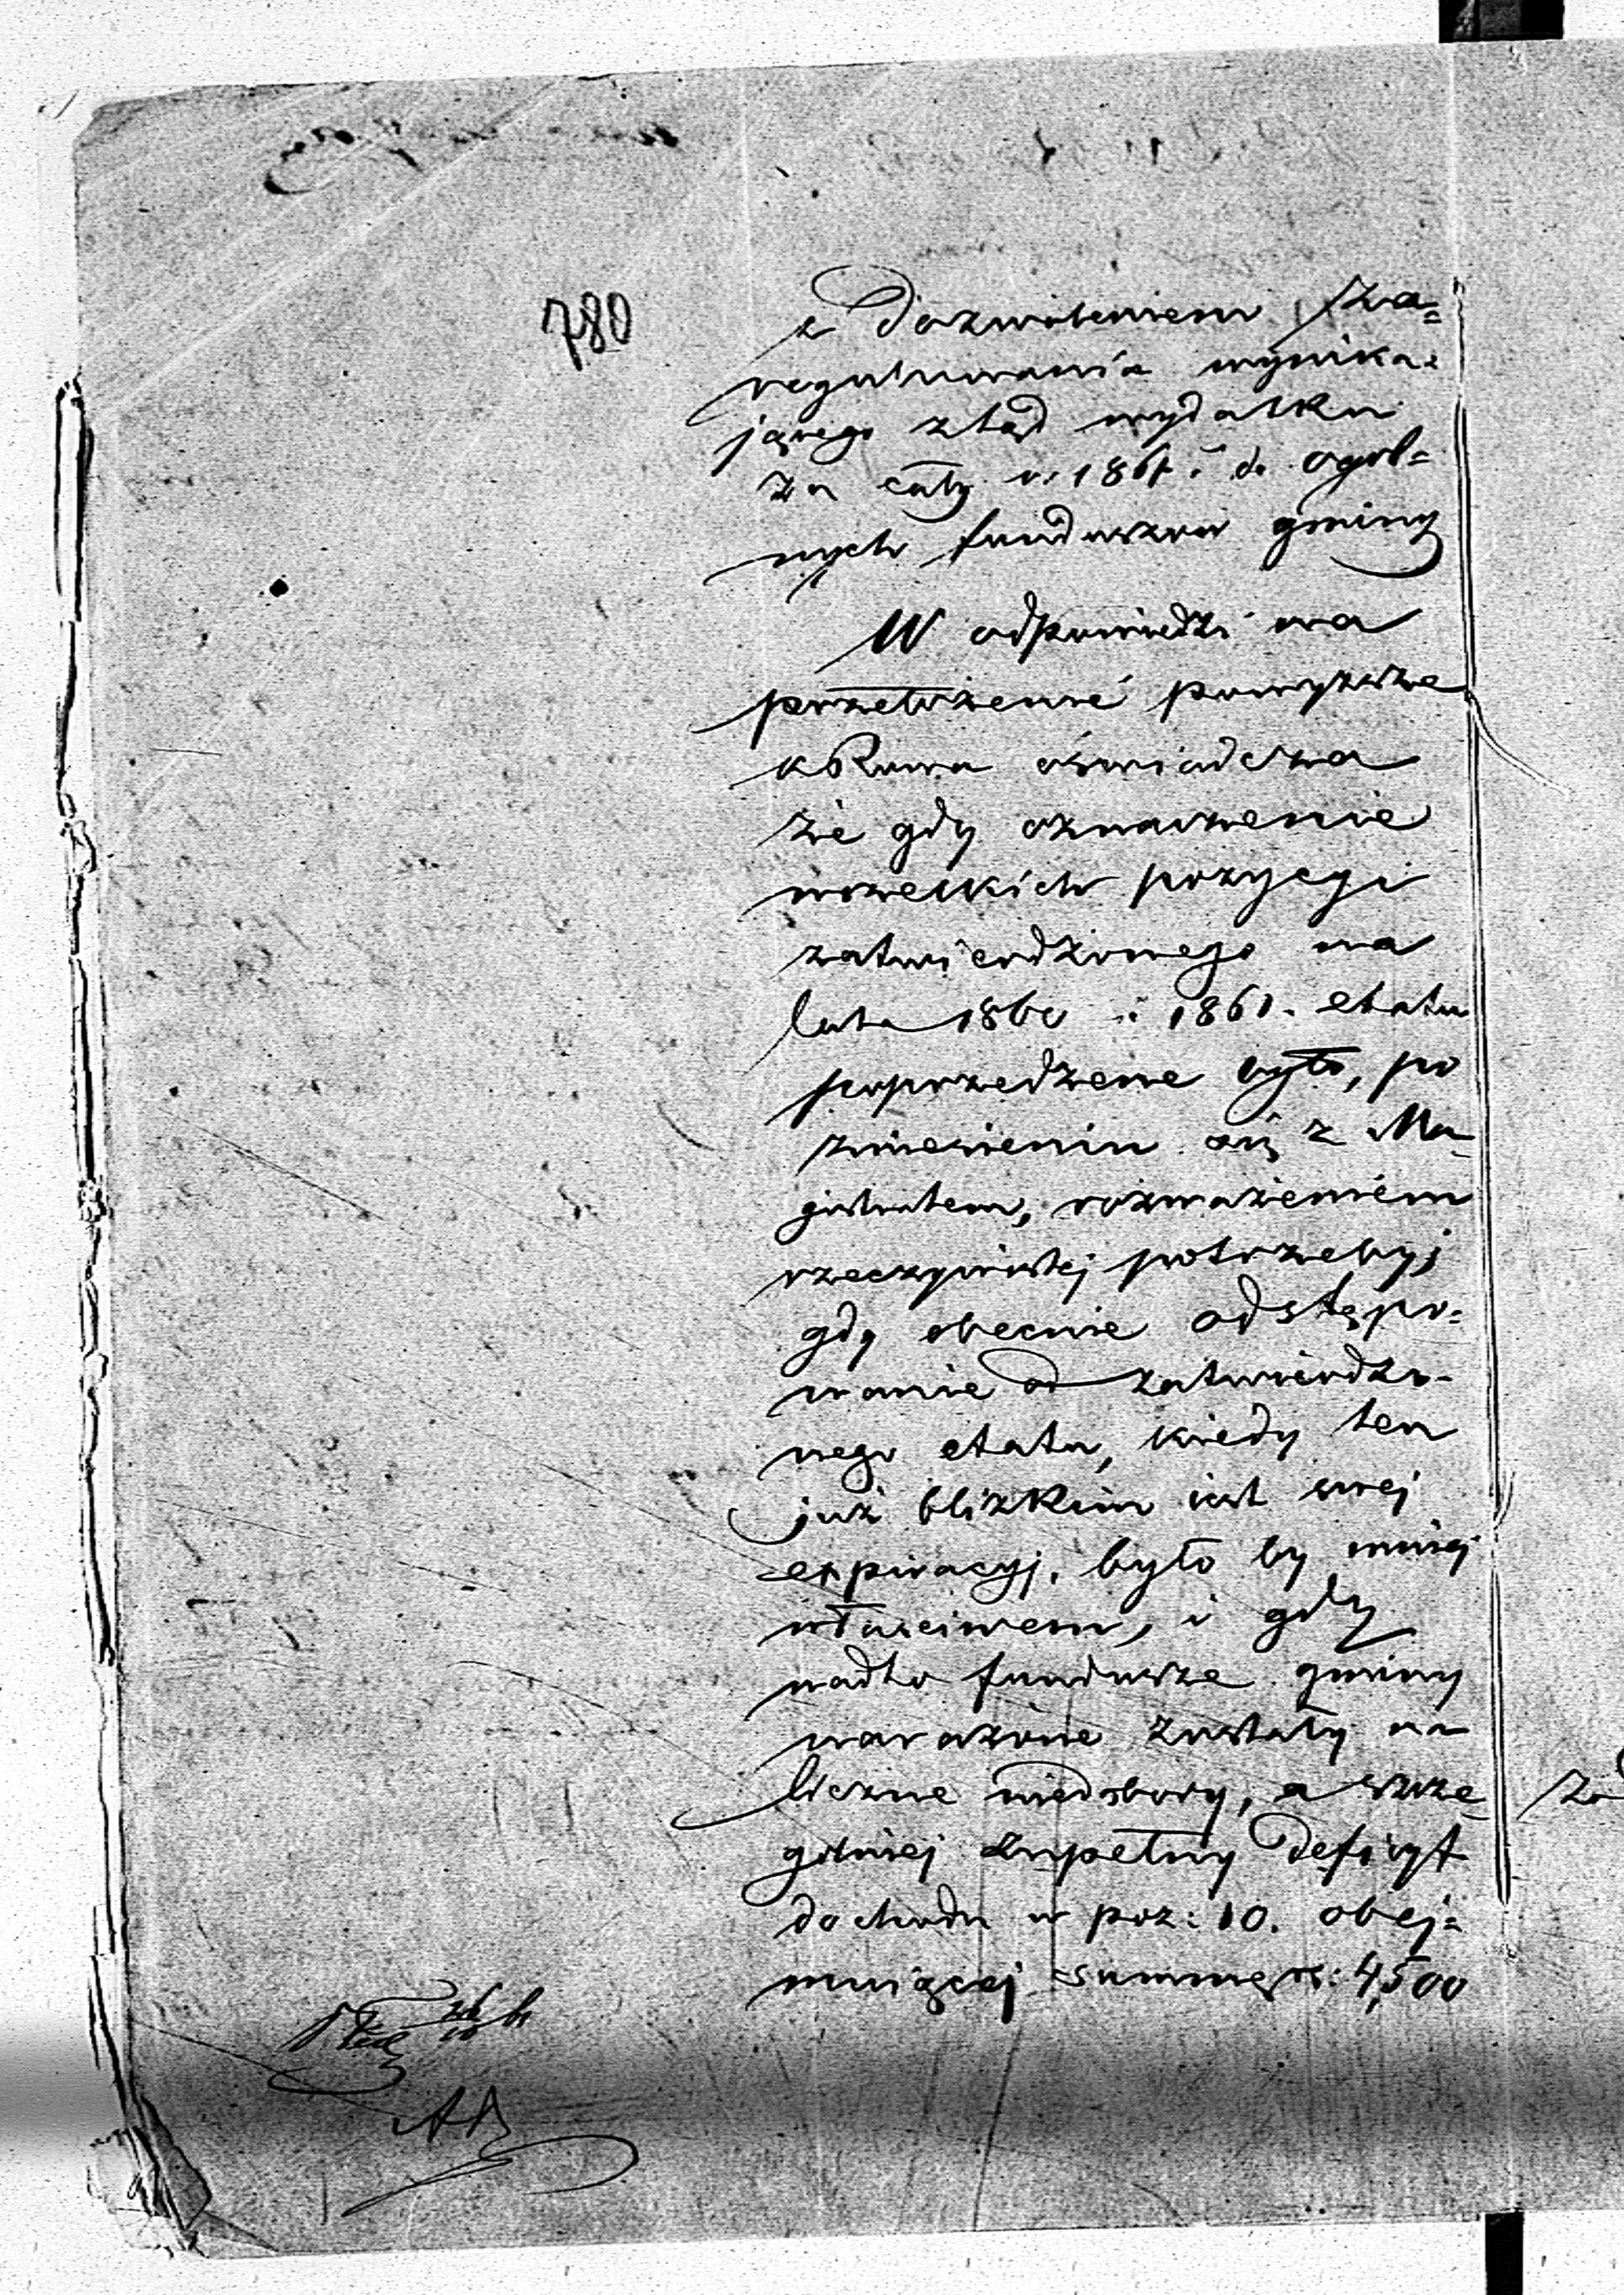 780
z dozwoleniem za=
regulowania wynika=
jącego ztąd wydatku
za cały r. 1861. do ogól=
nych funduszow gminy
W odpowiedzi na
przełożenie powyższe
oświadcza
że gdy oznaczenie
wszelkich pozycyi
zatwierdzonego na
lata 1860 i 1861. etatu
poprzedzone było, po
zniesieniu się z Ma-
gistratem, rozważeniem
rzeczywistej potrzeby;
gdy obecnie odstępo=
wanie od zatwierdzo-
nego etatu, kiedy ten
już blizkim jest swej
expiracyj, było by mniej
właściwem, i gdy
nadto fundusze gminy
narażone zostały na
liczne niedobory, a szcze
gólniej zupełny deficyt
dochodu w poz: 10. obej=
mującej summę rs: 4,500